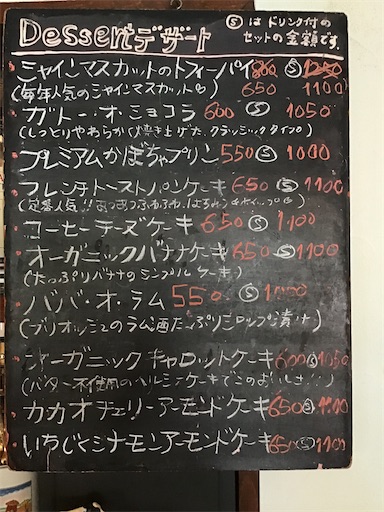 Dessert デザート
Ⓢ は ドリンク付の
セットの金額です。
シャインマスカットのトフィーパイ 800 Ⓢ 1250
(毎年人気のシャインマスカット♡) 650 1100
ガトー・オ・ショコラ 600 Ⓢ 1050
(しっとりやわらか 焼き上げた クラッシックタイプ)
プレミアムかぼちゃプリン 550 Ⓢ 1000
フレンチトーストパンケーキ 650 Ⓢ 1100
(定番人気!! あつあつふわふわ はちみつ
コーヒーチーズケーキ 650 Ⓢ 1100
オーガニックバナナケーキ 650 Ⓢ 1100
(たっぷりバナナのシンプルケーキ)
ババ・オ・ラム 550 Ⓢ 1000
(ブリオッシュのラム酒たっぷりシロップ漬け)
オーガニック キャロットケーキ 600 Ⓢ 1050
(バター不使用のヘルシーケーキで
カカオチェリーアーモンドケーキ 650 Ⓢ 1100
いちじくシナモンアーモンドケーキ 650 Ⓢ 1100